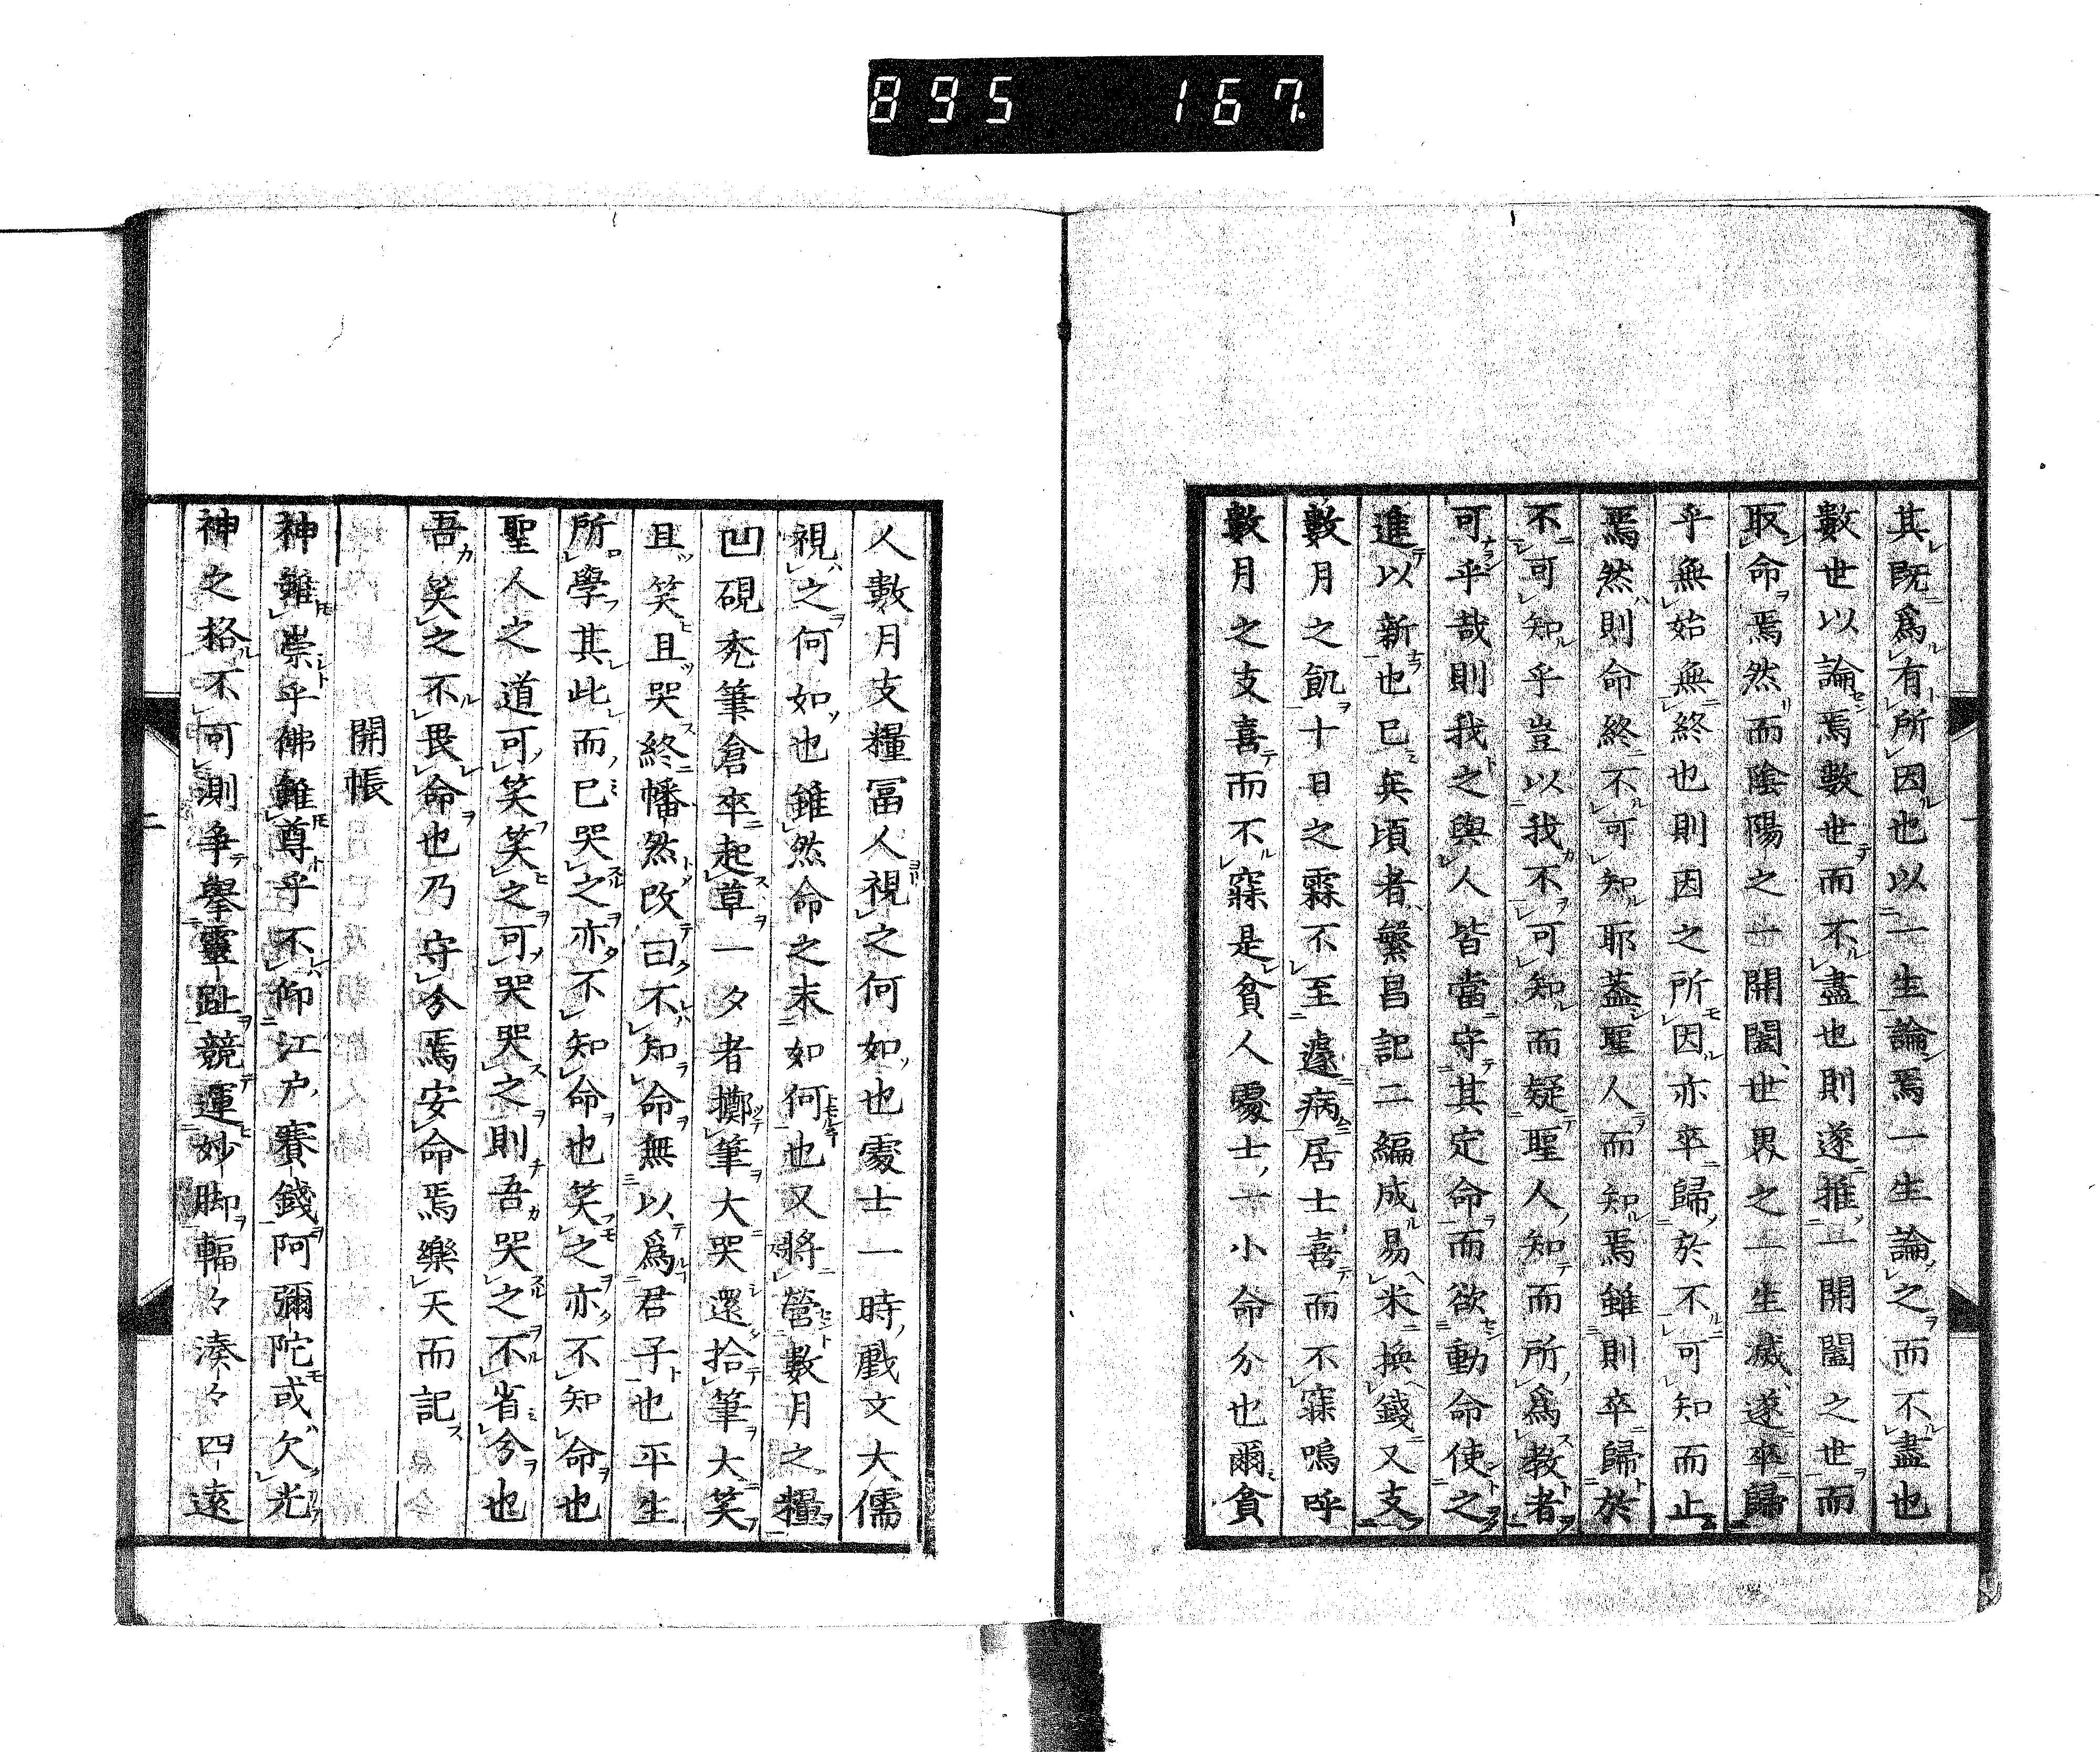 895 167.
其既爲有所因也以一生論焉一生論之而不盡也
數世以論焉數世而不盡也則遂推一開闔之世而
取命焉然而陰陽之一開闔世界之一生滅遂卒歸
乎無始無終也則因之所因亦卒歸於不可知而止
焉然則命終不可知耶蓋聖人而知焉雖則卒歸於
不可知乎豈以我不可知而疑聖人知而所爲教者
可乎哉則我之與人皆當守其定命而欲動命使之
進以新也已矣頃者繁昌記二編成易米換錢又支
數月之飢十日之霖不至遽病居士喜而不寐嗚呼
數月之支喜而不寐是貧人處士一小命分也爾貧
人數月支糧冨人視之何如也處士一時戲文大儒
視之何如也雖然命之末如何也又將營數月之糧
凹硯禿筆倉卒起草一夕者擲筆大哭還拾筆大笑
且笑且哭終幡然改曰不知命無以爲君子也平生
所學其此而已哭之亦不知命也笑之亦不知命也
聖人之道可笑笑之可哭哭之則吾哭之不省分也
吾笑之不畏命也乃守分焉安命焉樂天而記
開帳
神雖崇乎佛雖尊乎不仰江戶賽錢阿彌陀或欠光
神之格不可測爭擧靈趾競運妙脚輻々湊々四遠
一
二